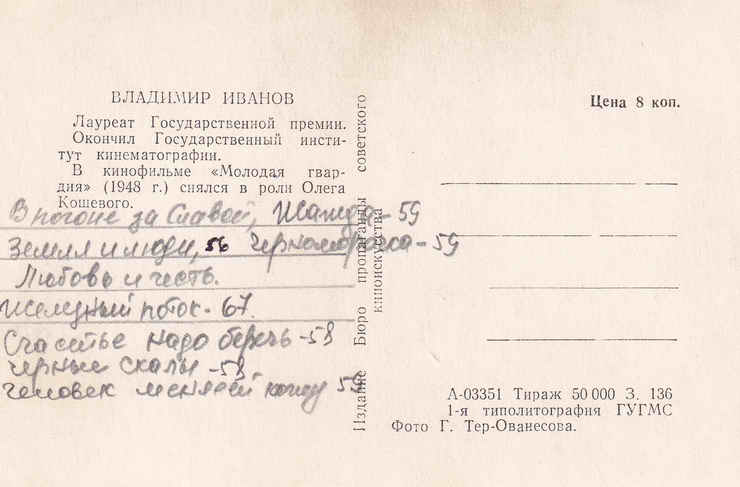 ВЛАДИМИР ИВАНОВ
Лауреат Государственной премии.
Окончил Государственный инсти-
тут кинематографии.
В кинофильме «Молодая гвар-
дия» (1948 г.) снялся в роли Олега
Кошевого.
В погоне за Славой, Жажда - 59
Земля и люди, 56 Черноморочка - 59
Любовь и честь.
Железный поток - 67.
Счастье надо беречь - 58
Черные скалы - 58
Человек меняет кожу 59
Издание Бюро пропаганды советского
киноискусства
Цена 8 коп.
А-03351 Тираж 50 000 З. 136
1-я типолитография ГУГМС
Фото Г. Тер-Ованесова.